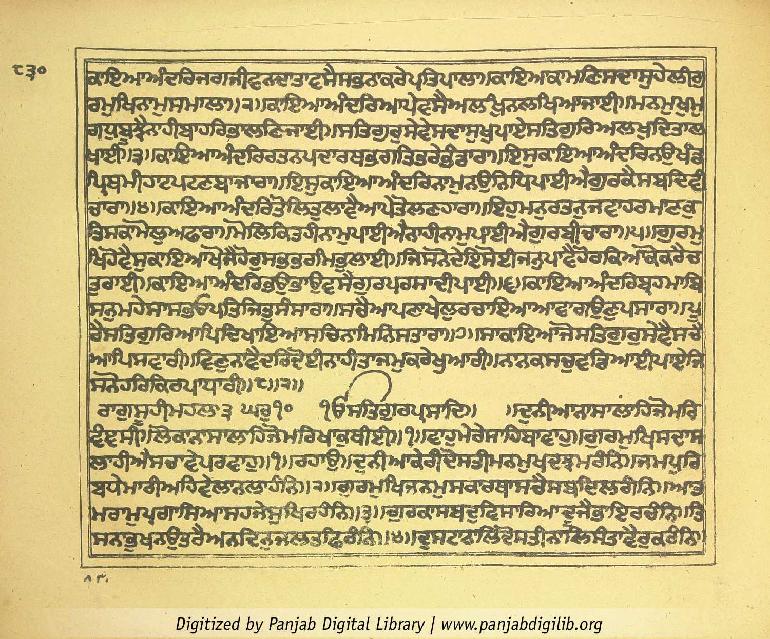 ੮੩੦
ਕਾਇਆਅੰਦਰਿਜਗਜੀਵਨਦਾਤਾਵਸੈਸਭਨਾਕਰੇਪ੍ਰਤਿਪਾਲਾ॥ਕਾਇਆਕਾਮਣਿਸਦਾਸੁਹੇਲੀਗੁ
ਰਮੁਖਿਨਾਮੁਸਮਾਲਾ॥੨॥ਕਾਇਆਅੰਦਰਿਆਪੇਵਸੈਅਲਖੁਨਲਖਿਆਜਾਈ॥ਮਨਮੁਖੁਮੁ
ਗਧੁਬੂਝੈਨਾਹੀਬਾਹਰਿਭਾਲਣਿਜਾਈ॥ਸਤਿਗੁਰੁਸੇਵੇਸਦਾਸੁਖੁਪਾਏਸਤਿਗੁਰਿਅਲਖੁਦਿਤਾਲ
ਖਾਈ॥੩॥ਕਾਇਆਅੰਦਰਿਰਤਨਪਦਾਰਥਭਗਤਿਭਰੇਭੰਡਾਰਾ॥ਇਸੁਕਾਇਆਅੰਦਰਿਨਉਖੰਡ
ਪ੍ਰਿਥਮੀਹਾਟਪਟਣਬਾਜਾਰਾ॥ਇਸੁਕਾਇਆਅੰਦਰਿਨਾਮੁਨਉਨਿਧਿਪਾਈਐਗੁਰਕੈਸਬਦਿਵੀ
ਚਾਰਾ॥੪॥ਕਾਇਆਅੰਦਰਿਤੋਲਿਤੁਲਾਵੈਆਪੇਤੋਲਣਹਾਰਾ॥ਇਹੁਮਨੁਰਤਨੁਜਵਾਹਰਮਾਣਕੁ
ਤਿਸਕਾਮੋਲੁਅਫਾਰਾ॥ਮੋਲਿਕਿਤਹੀਨਾਮੁਪਾਈਐਨਾਹੀਨਾਮੁਪਾਈਐਗੁਰਬੀਚਾਰਾ॥੫॥ਗੁਰਮੁ
ਖਿਹੋਵੈਸੁਕਾਇਆਖੋਜੈਹੋਰਸਭਭਰਮਿਭੁਲਾਈ॥ਜਿਸਨੋਦੇਇਸੋਈਜਨੁਪਾਵੈਹੋਰਕਿਆਕੋਕਰੇਚ
ਤੁਰਾਈ॥ਕਾਇਆਅੰਦਰਿਭਉਭਾਉਵਸੈਗੁਰਪਰਸਾਦੀਪਾਈ॥੬॥ਕਾਇਆਅੰਦਰਿਬ੍ਰਹਮਾਬਿ
ਸਨੁਮਹੇਸਾਸਭਓਪਤਿਜਿਤੁਸੰਸਾਰਾ॥ਸਚੈਆਪਣਾਖੇਲੁਰਚਾਇਆਆਵਾਗਉਣੁਪਸਾਰਾ॥ਪੂ
ਰੈਸਤਿਗੁਰਿਆਪਿਦਿਖਾਇਆਸਚਿਨਾਮਿਨਿਸਤਾਰਾ॥੭॥ਸਾਕਾਇਆਜੋਸਤਿਗੁਰੁਸੇਵੈਸਚੈ
ਆਪਿਸਵਾਰੀ॥ਵਿਣੁਨਾਵੈਦਰਿਢੋਈਨਾਹੀਤਾਜਮੁਕਰੇਖੁਆਰੀ॥ਨਾਨਕਸਚੁਵਡਿਆਈਪਾਏਜਿ
ਸਨੋਹਰਿਕਿਰਪਾਧਾਰੀ॥੮॥੨॥
ਰਾਗੁਸੂਹੀਮਹਲਾ੩ ਘਰੁ੧੦ ੴਸਤਿਗੁਰਪ੍ਰਸਾਦਿ॥ ॥ਦੁਨੀਆਨਸਾਲਾਹਿਜੋਮਰਿ
ਵੰਞਸੀ॥ਲੋਕਾਨਸਾਲਾਹਿਜੋਮਰਿਖਾਕੁਥੀਈ॥੧॥ਵਾਹੁਮੇਰੇਸਾਹਿਬਾਵਾਹੁ॥ਗੁਰਮੁਖਿਸਦਾਸ
ਲਾਹੀਐਸਚਾਵੇਪਰਵਾਹੁ॥੧॥ਰਹਾਉ॥ਦੁਨੀਆਕੇਰੀਦੋਸਤੀਮਨਮੁਖਦਝਿਮਰੰਨਿ॥ਜਮਪੁਰਿ
ਬਧੇਮਾਰੀਅਹਿਵੇਲਾਨਲਾਹੰਨਿ॥੨॥ਗੁਰਮੁਖਿਜਨਮੁਸਕਾਰਥਾਸਚੈਸਬਦਿਲਗੰਨਿ॥ਆਤ
ਮਰਾਮੁਪ੍ਰਗਾਸਿਆਸਹਜੇਸੁਖਿਰਹੰਨਿ॥੩॥ਗੁਰਕਾਸਬਦੁਵਿਸਾਰਿਆਦੂਜੈਭਾਇਰਚੰਨਿ॥ਤਿ
ਸਨਾਭੁਖਨਉਤਰੈਅਨਦਿਨੁਜਲਤਫਿਰੰਨਿ॥੪॥ਦੁਸਟਾਨਾਲਿਦੋਸਤੀਨਾਲਿਸੰਤਾਵੈਰੁਕਰੰਨਿ॥
Digitized by Panjab Digital Library | www.panjabdigilib.org